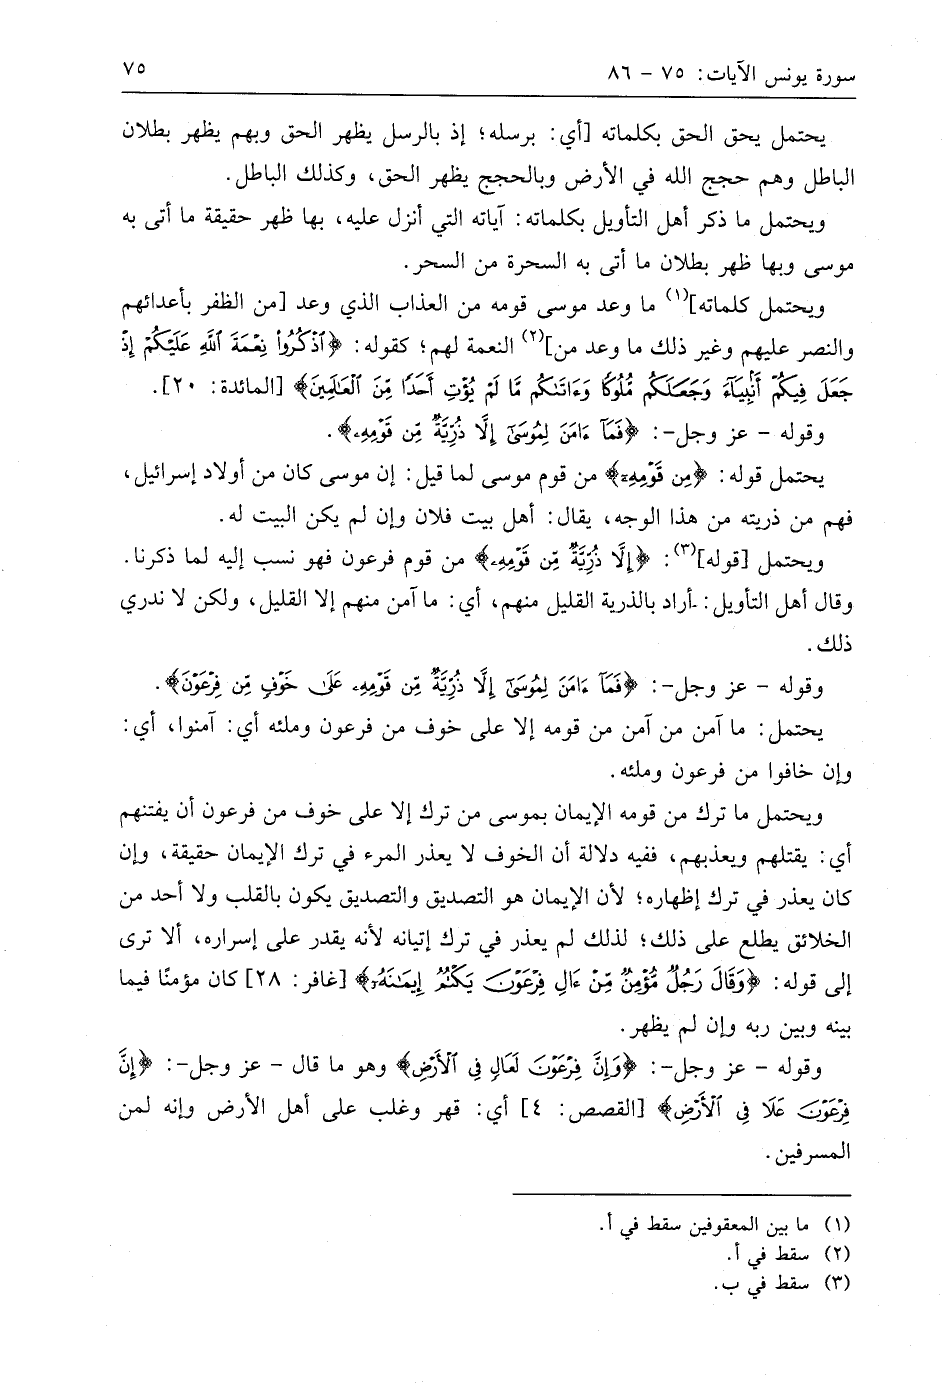 سورة يونس الآيات: ٧٥ - ٨٦
٧٥
يحتمل يحق الحق بكلماته [أي: برسله؛ إذ بالرسل يظهر الحق وبهم يظهر بطلان
الباطل وهم حجج الله في الأرض وبالحجج يظهر الحق، وكذلك الباطل.
ويحتمل ما ذكر أهل التأويل بكلماته: آياته التي أنزل عليه، بها ظهر حقيقة ما أتى به
موسى وبها ظهر بطلان ما أتى به السحرة من السحر.
ويحتمل كلماته](١) ما وعد موسى قومه من العذاب الذي وعد [من الظفر بأعدائهم
والنصر عليهم وغير ذلك ما وعد من](٢) النعمة لهم؛ كقوله: ﴿ٱذۡكُرُواْ نِعۡمَةَ ٱللَّهِ عَلَيۡكُمۡ إِذۡ
جَعَلَ فِيكُمۡ أَنۢبِيَآءَ وَجَعَلَكُم مُّلُوكٗا وَءَاتَىٰكُم مَّا لَمۡ يُؤۡتِ أَحَدٗا مِّنَ ٱلۡعَٰلَمِينَ﴾ [المائدة: ٢٠].
وقوله - عز وجل-: ﴿فَمَآ ءَامَنَ لِمُوسَىٰٓ إِلَّا ذُرِّيَّةٞ مِّن قَوۡمِهِۦ﴾.
يحتمل قوله: ﴿مِّن قَوۡمِهِۦ﴾ من قوم موسى لما قيل: إن موسى كان من أولاد إسرائيل،
فهم من ذريته من هذا الوجه، يقال: أهل بيت فلان وإن لم يكن البيت له.
ويحتمل [قوله](٣): ﴿إِلَّا ذُرِّيَّةٞ مِّن قَوۡمِهِۦ﴾ من قوم فرعون فهو نسب إليه لما ذكرنا.
وقال أهل التأويل: أراد بالذرية القليل منهم، أي: ما آمن منهم إلا القليل، ولكن لا ندري
ذلك.
وقوله - عز وجل-: ﴿فَمَآ ءَامَنَ لِمُوسَىٰٓ إِلَّا ذُرِّيَّةٞ مِّن قَوۡمِهِۦ عَلَىٰ خَوۡفٖ مِّن فِرۡعَوۡنَ﴾.
يحتمل: ما آمن من آمن من قومه إلا على خوف من فرعون وملئه أي: آمنوا، أي:
وإن خافوا من فرعون وملئه.
ويحتمل ما ترك من قومه الإيمان بموسى من ترك إلا على خوف من فرعون أن يفتنهم
أي: يقتلهم ويعذبهم، ففيه دلالة أن الخوف لا يعذر المرء في ترك الإيمان حقيقة، وإن
كان يعذر في ترك إظهاره؛ لأن الإيمان هو التصديق والتصديق يكون بالقلب ولا أحد من
الخلائق يطلع على ذلك؛ لذلك لم يعذر في ترك إتيانه لأنه يقدر على إسراره، ألا ترى
إلى قوله: ﴿وَقَالَ رَجُلٞ مُّؤۡمِنٞ مِّنۡ ءَالِ فِرۡعَوۡنَ يَكۡتُمُ إِيمَٰنَهُۥٓ﴾ [غافر: ٢٨] كان مؤمنًا فيما
بينه وبين ربه وإن لم يظهر.
وقوله - عز وجل-: ﴿وَإِنَّ فِرۡعَوۡنَ لَعَالٖ فِي ٱلۡأَرۡضِ﴾ وهو ما قال - عز وجل-: ﴿إِنَّ
فِرۡعَوۡنَ عَلَا فِي ٱلۡأَرۡضِ﴾ [القصص: ٤] أي: قهر وغلب على أهل الأرض وإنه لمن
المسرفين.
(١) ما بين المعقوفين سقط في أ.
(٢) سقط في أ.
(٣) سقط في ب.